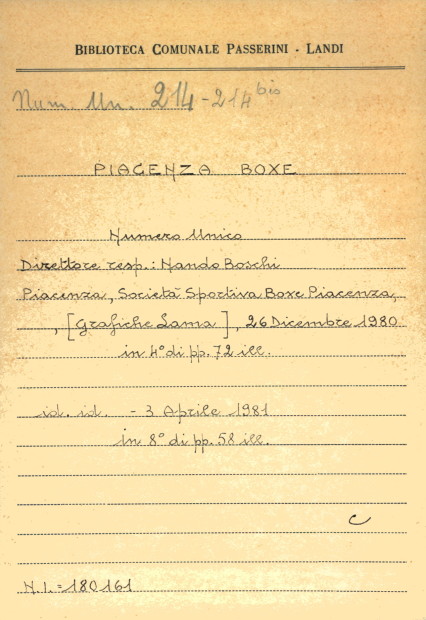 BIBLIOTECA COMUNALE PASSERINI - LANDI
Num. Un. 214 - 214 bis
PIACENZA BOXE
Numero Unico
Direttore resp.: Nando Boschi
Piacenza, Società Sportiva Boxe Piacenza,
, [Grafiche Lama], 26 Dicembre 1980
in 4° di pp. 72 ill.
id. id. - 3 Aprile 1981
in 8° di pp. 58 ill.
C
N.I. = 180161